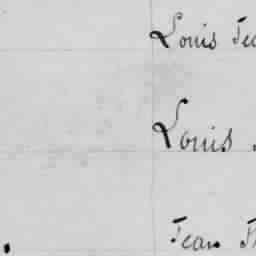 Louis
Louis
Jean